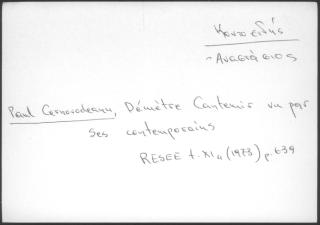 Κοντοειδής
- Αναστάσιος
Paul Cernovodeanu, Démètre Cantemir vu par
ses contemporains
RESEE t. XI₄ (1973) p. 639